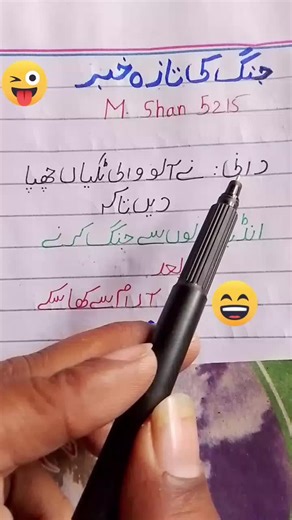 جنگ کی تازہ خبر
M. Shan 5215
نے آلو والی ٹکیاں چھپا
دیں تاکہ
والوں سے جنگ کرنے
بعد
آرام سے کھا سکے